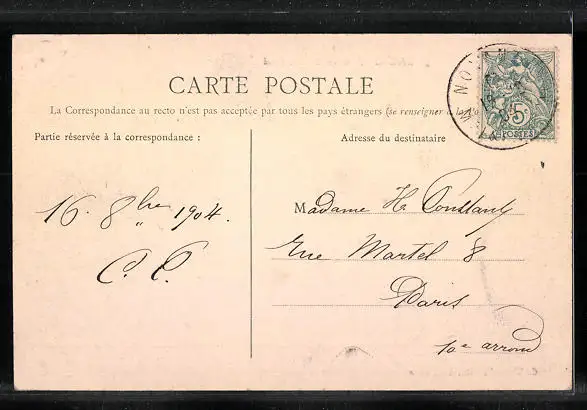 CARTE POSTALE
La Correspondance au recto n'est pas acceptée par tous les pays étrangers (se renseigner à la
Partie réservée à la correspondance :
Adresse du destinataire
5c
POSTES
16. 8bre 1904.
C. C.
Madame Hri Constant
Rue Martel 8
Paris
10e arrond